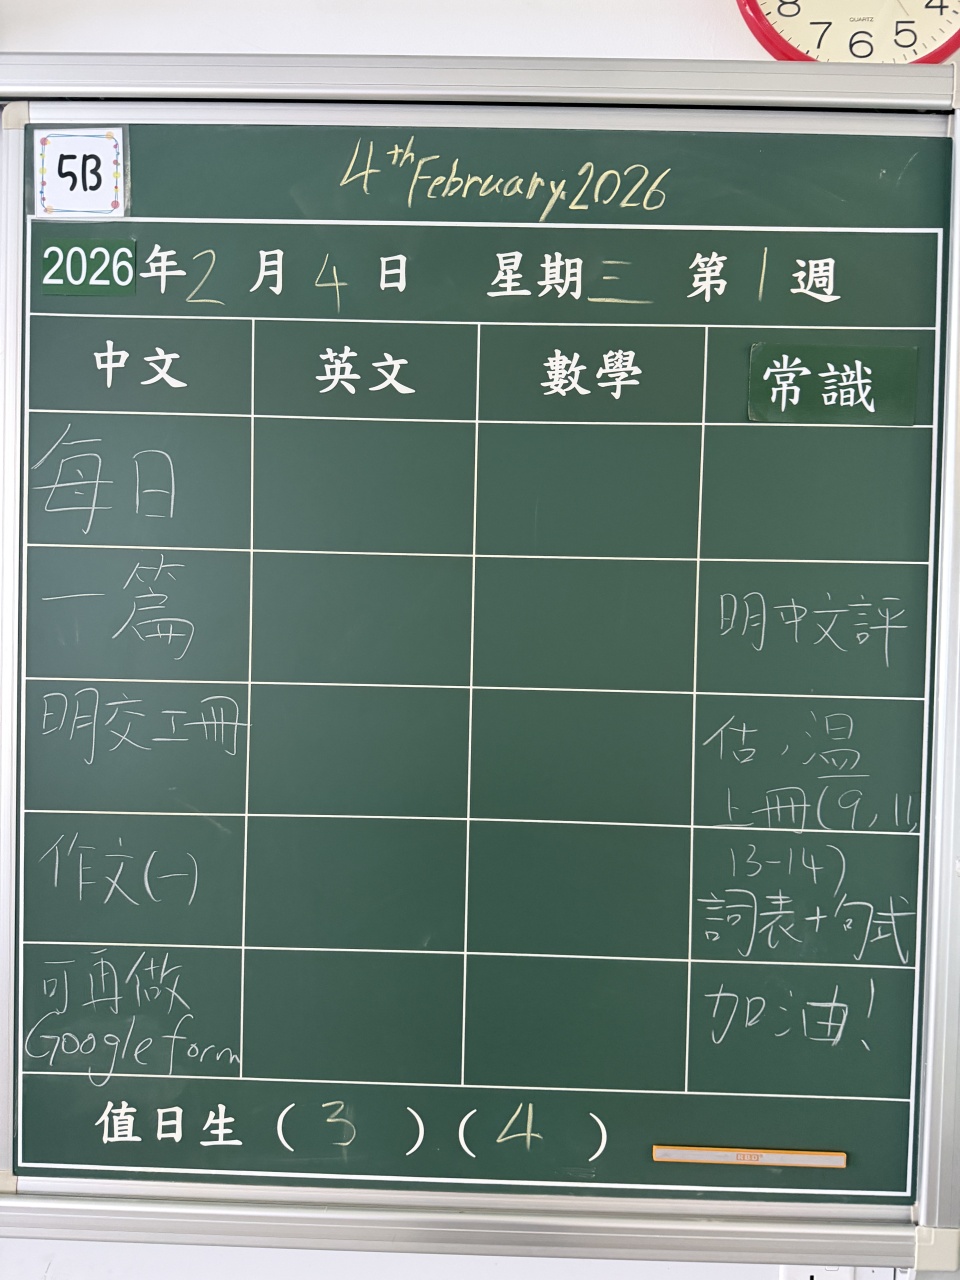 8 4
7 6 5
QUARTZ
5B
4th February, 2026
2026年2月4日 星期三 第1週
中文 英文 數學 常識
每日
一篇
明交工冊
作文(一)
可再做
Google form
明中文評
估,溫
上冊(9, 11,
13-14)
詞表+句式
加油!
值日生 (3) (4)